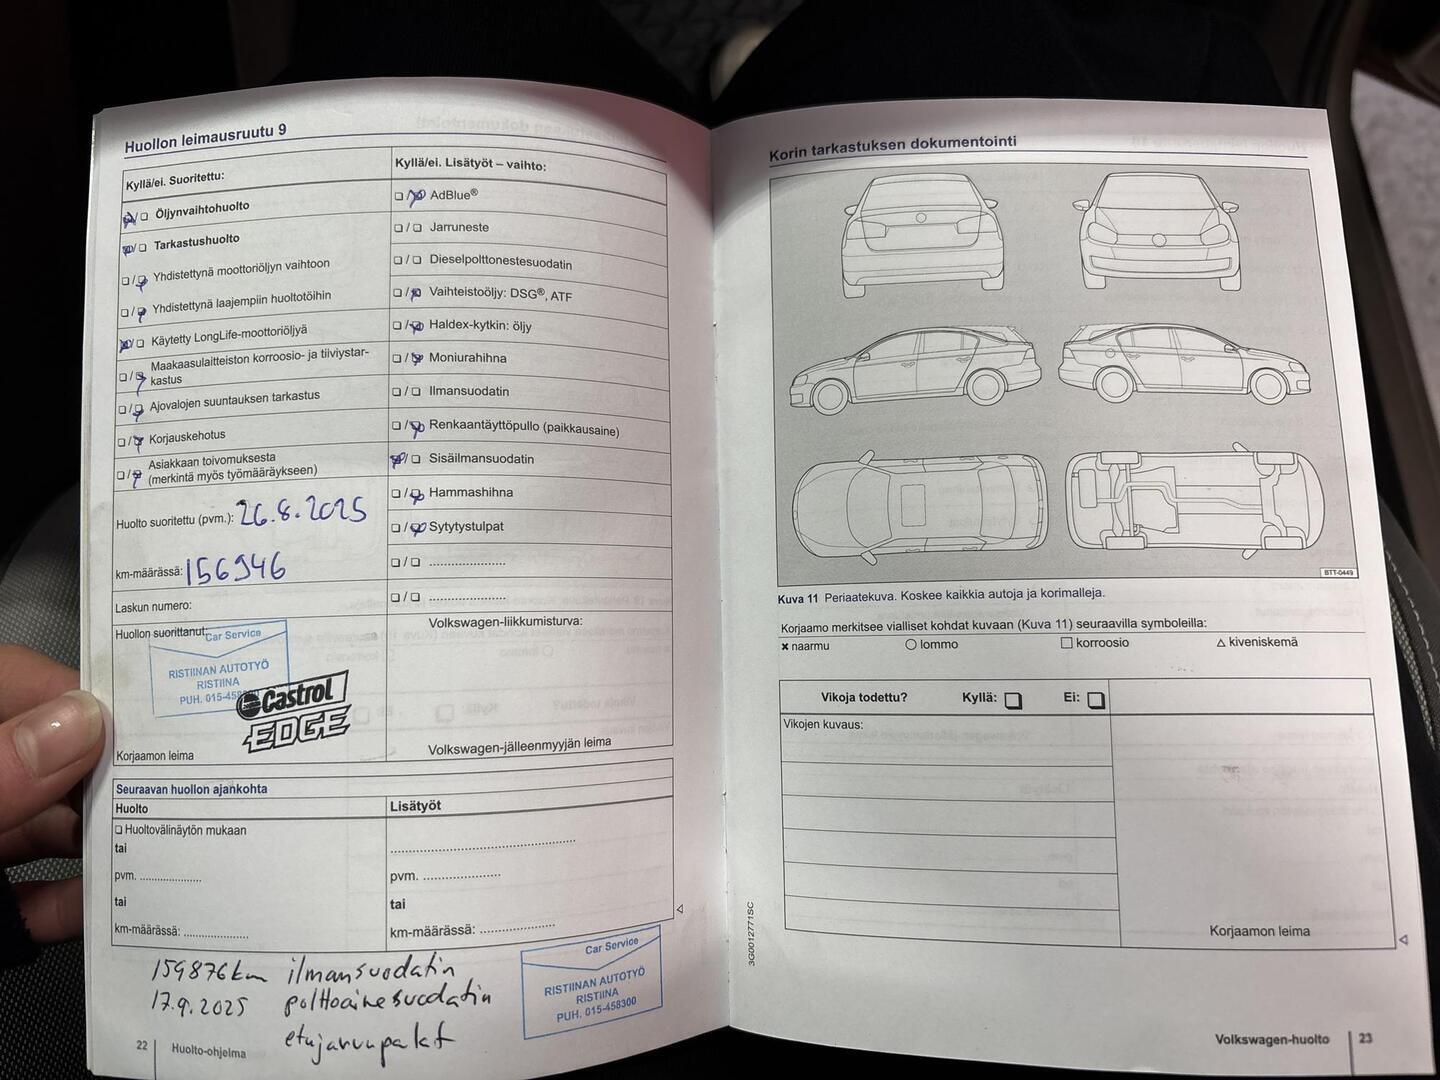 Huollon leimausruutu 9
Kyllä/ei. Suoritettu:
Öljynvaihtohuolto
Tarkastushuolto
Yhdistettynä moottoriöljyn vaihtoon
Yhdistettynä laajempiin huoltotöihin
Käytetty LongLife-moottoriöljyä
Maakaasulaitteiston korroosio- ja tiiviystar-
kastus
Ajovalojen suuntauksen tarkastus
Korjauskehotus
Asiakkaan toivomuksesta
(merkintä myös työmääräykseen)
Huolto suoritettu (pvm.): 26.8.2025
km-määrässä: 156946
Laskun numero:
Huollon suorittanut:
Car Service
RISTIINAN AUTOTYÖ
RISTIINA
PUH. 015-458
Castrol
EDGE
Korjaamon leima
Kyllä/ei. Lisätyöt – vaihto:
AdBlue®
Jarruneste
Dieselpolttonestesuodatin
Vaihteistoöljy: DSG®, ATF
Haldex-kytkin: öljy
Moniurahihna
Ilmansuodatin
Renkaantäyttöpullo (paikkausaine)
Sisäilmansuodatin
Hammashihna
Sytytystulpat
Volkswagen-liikkumisturva:
Volkswagen-jälleenmyyjän leima
Seuraavan huollon ajankohta
Huolto
Huoltovälinäytön mukaan
tai
pvm. ....................
tai
km-määrässä: ....................
Lisätyöt
pvm. ....................
tai
km-määrässä: ....................
159876km ilmansuodatin
17.9.2025 polttoainesuodatin
etujarrupalat
Car Service
RISTIINAN AUTOTYÖ
RISTIINA
PUH. 015-458300
22 Huolto-ohjelma
3G0012771SC
Korin tarkastuksen dokumentointi
BTT-0449
Kuva 11 Periaatekuva. Koskee kaikkia autoja ja korimalleja.
Korjaamo merkitsee vialliset kohdat kuvaan (Kuva 11) seuraavilla symboleilla:
× naarmu ○ lommo □ korroosio △ kiveniskemä
Vikoja todettu? Kyllä: □ Ei: □
Vikojen kuvaus:
Korjaamon leima
Volkswagen-huolto 23